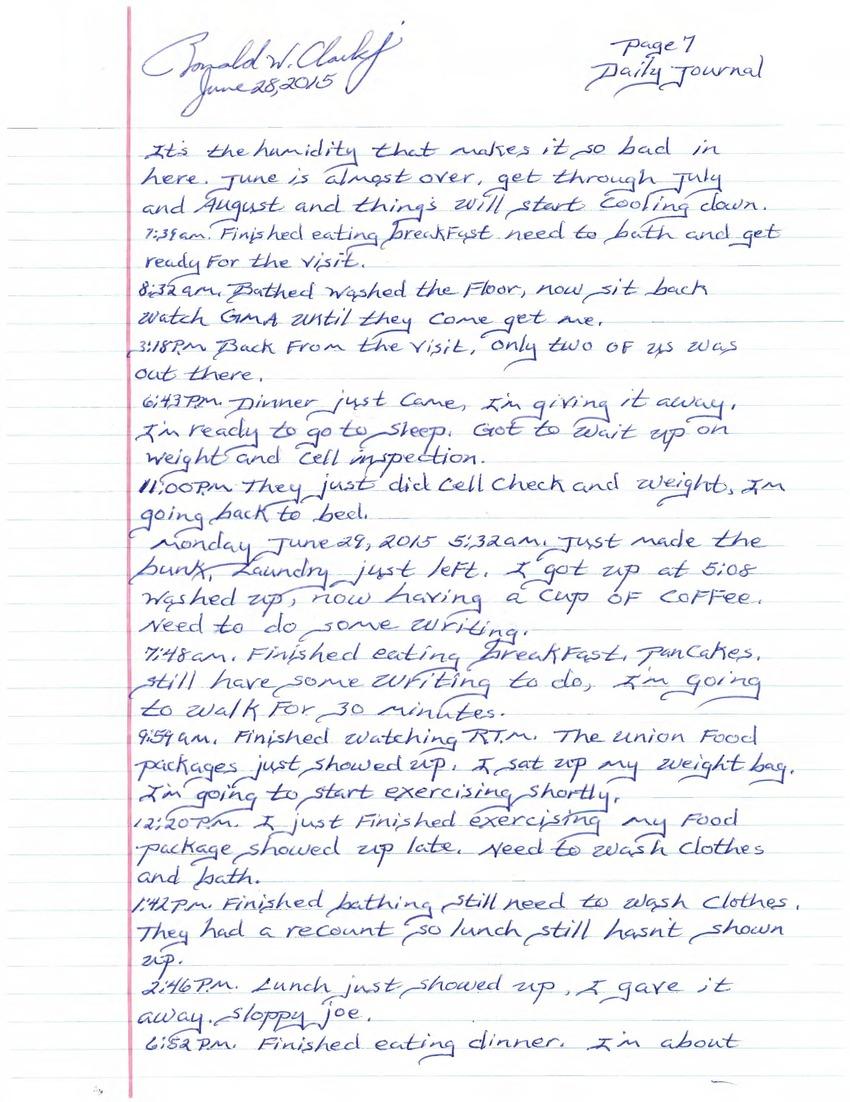 Ronald W. Clark Jr
June 28, 2015
Page 7
Daily Journal
It's the humidity that makes it so bad in
here. June is almost over, get through July
and August and thing's will start cooling down.
7:39am. Finished eating breakfast need to bath and get
ready for the visit.
8:32am. Bathed washed the floor, now sit back
watch GMA until they come get me.
3:18P.M Back from the visit, only two of us was
out there.
6:43P.M. Dinner just came, I'm giving it away.
I'm ready to go to sleep. Got to wait up on
weight and cell inspection.
11:00P.M They just did cell check and weight, I'm
going back to bed.
Monday June 29, 2015 5:32am. Just made the
bunk, Laundry just left. I got up at 5:08
washed up, now having a cup of coffee.
Need to do some writing.
7:48am. Finished eating breakfast, pancakes.
Still have some writing to do, I'm going
to walk for 30 minutes.
9:59am. Finished watching R.T.M. The union food
packages just showed up. I sat up my weight bag.
I'm going to start exercising shortly.
12:20P.M. I just finished exercising my food
package showed up late. Need to wash clothes
and bath.
1:42P.M. Finished bathing still need to wash clothes.
They had a recount so lunch still hasn't shown
up.
2:46P.M. Lunch just showed up, I gave it
away. sloppy joe.
6:52P.M. Finished eating dinner. I'm about